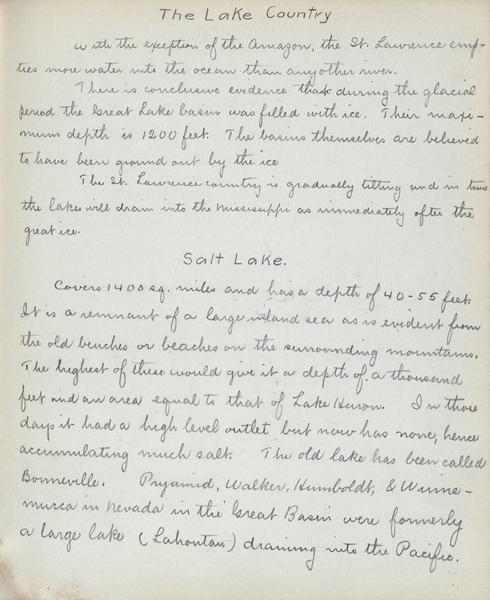 The Lake Country
With the exception of the Amazon, the St. Lawrence emp-
ties more water into the ocean than any other river.
There is conclusive evidence that during the glacial
period the Great Lake basin was filled with ice. Their maxi-
mum depth is 1200 feet. The basins themselves are believed
to have been ground out by the ice
The St. Lawrence country is gradually tilting and in time
the lakes will drain into the Mississippi as immediately after the
great ice.
Salt Lake.
Covers 1400 sq. miles and has a depth of 40-55 feet.
It is a remnant of a large inland sea as is evident from
the old benches or beaches on the surrounding mountains.
The highest of these would give it a depth of a thousand
feet and an area equal to that of Lake Huron. In those
days it had a high level outlet but now has none, hence
accumulating much salt. The old lake has been called
Bonneville. Payamid, Walker, Humboldt, & Winne-
mucca in Nevada in the Great Basin were formerly
a large lake (Lahontan) draining into the Pacific.